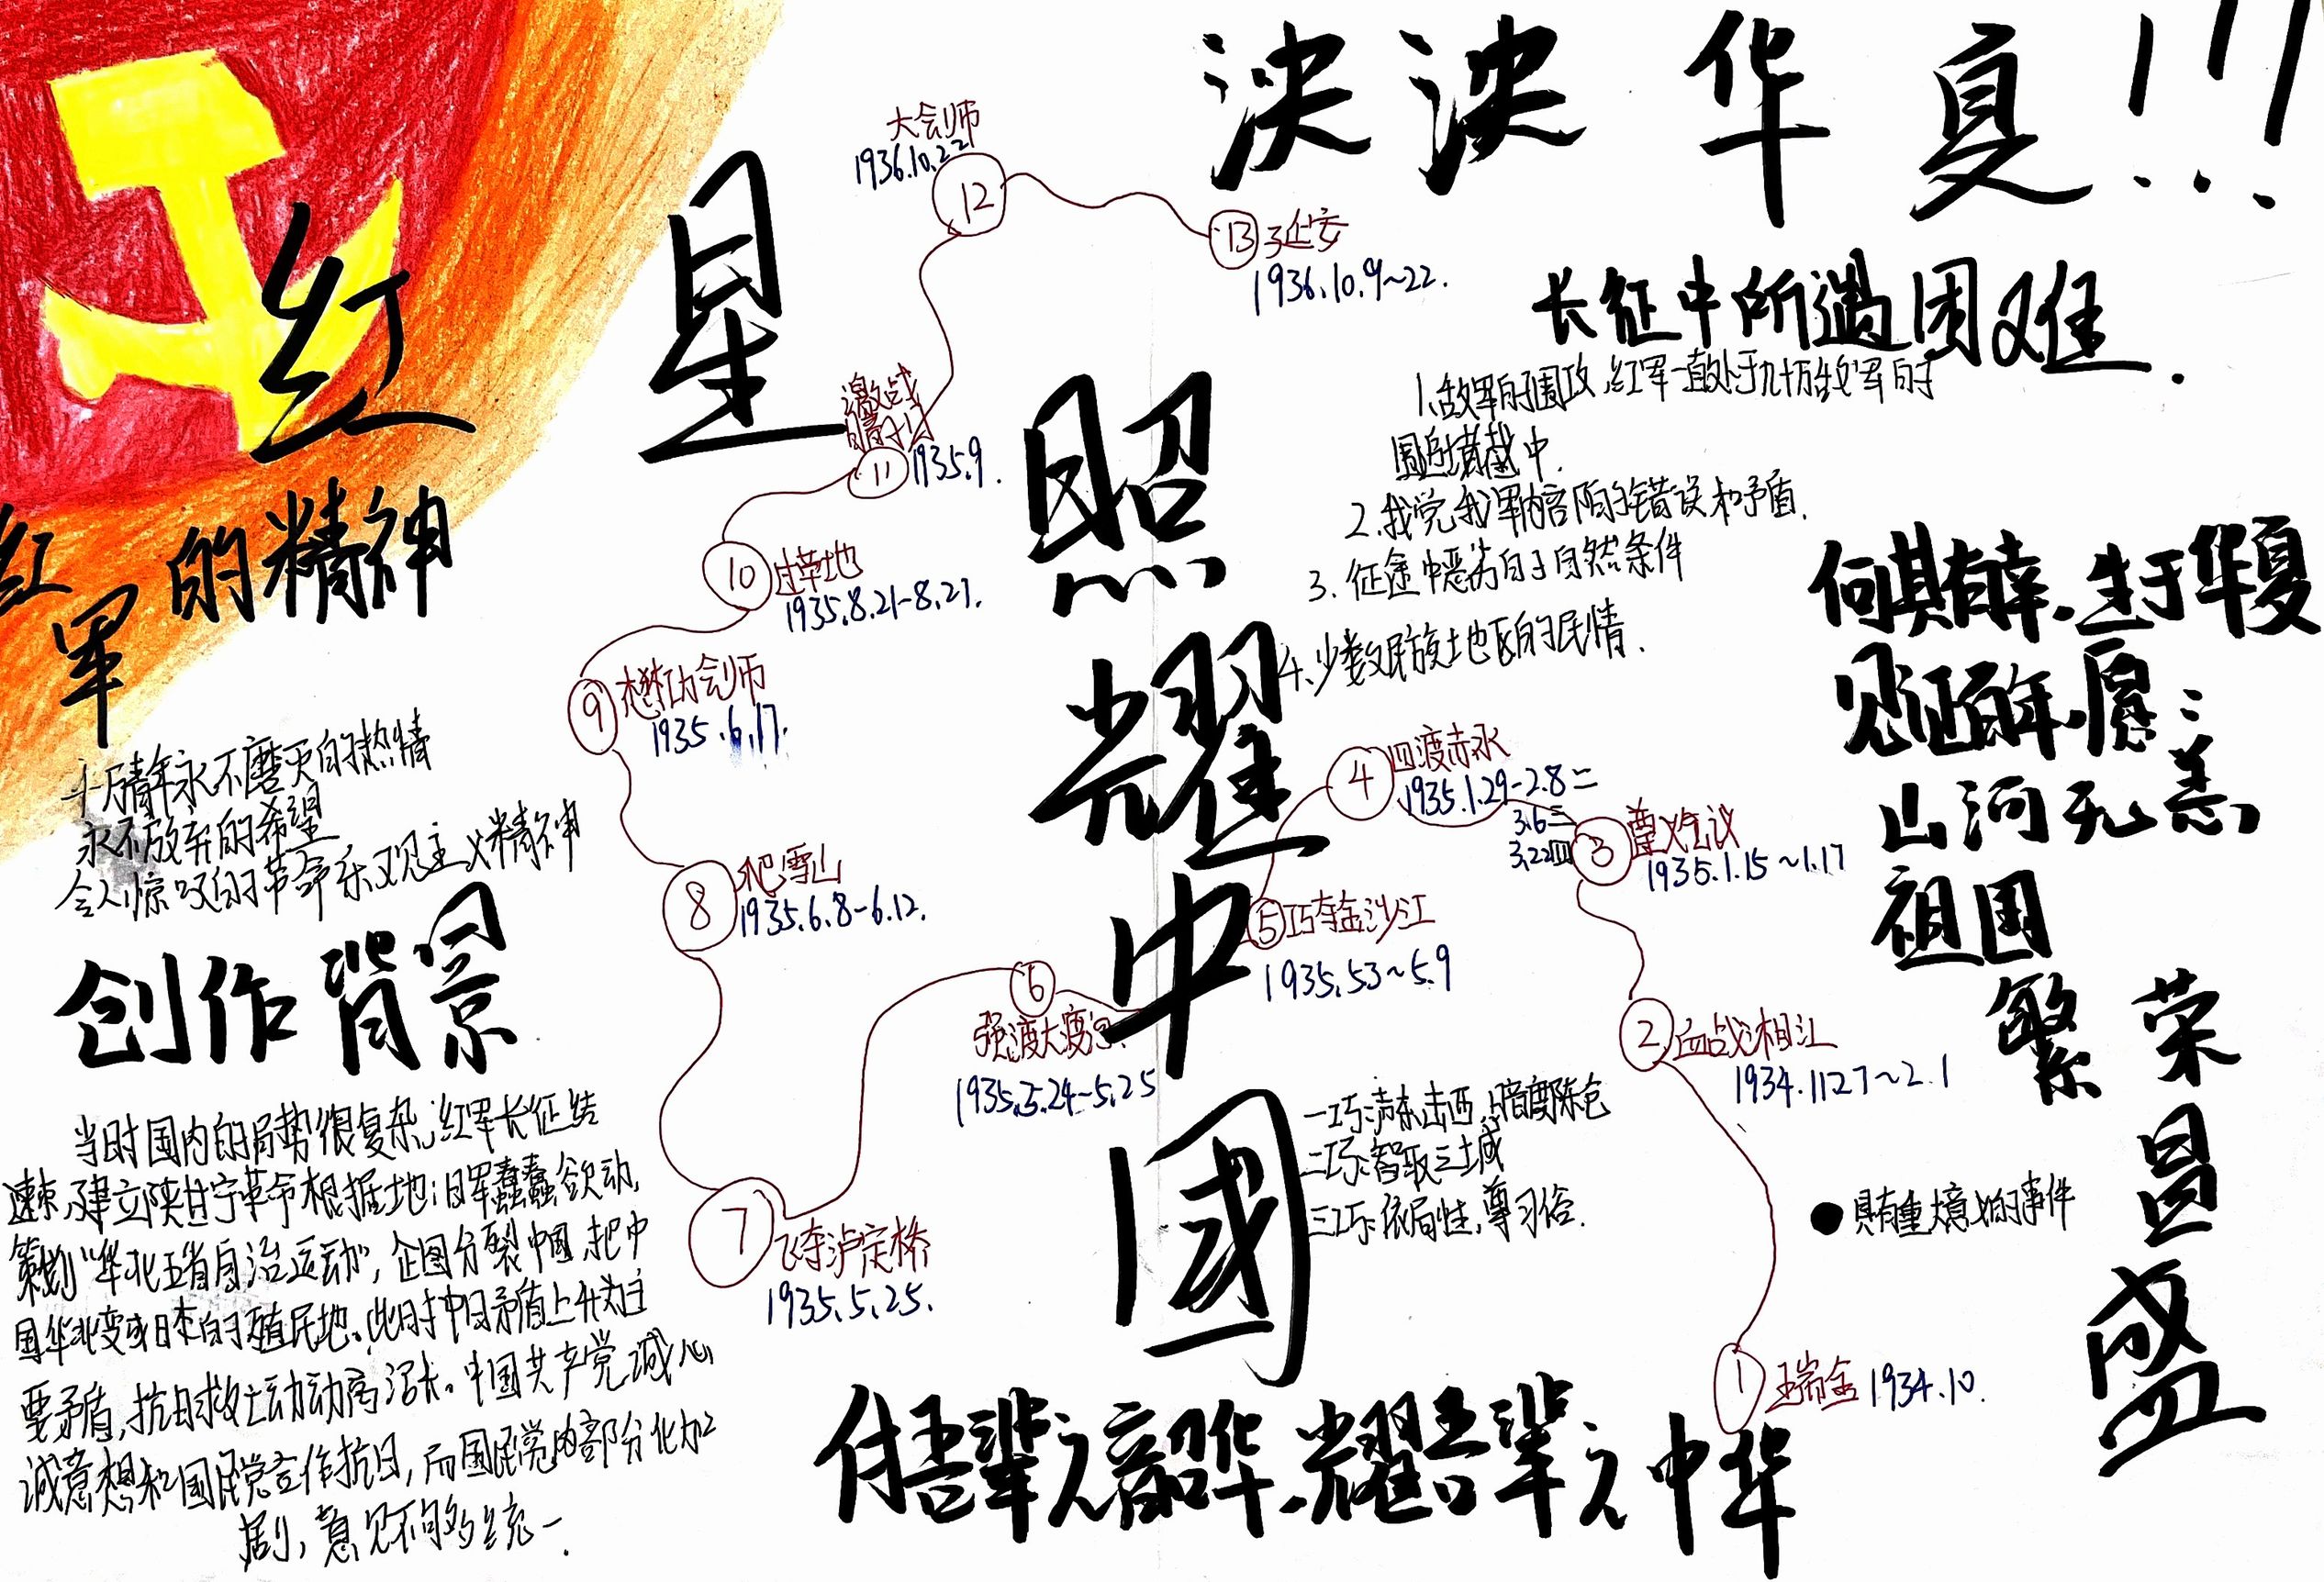 泱泱华夏!!!
红星照耀中国
红军的精神
十万青年永不磨灭的热情
永不放弃的希望
令人惊叹的革命乐观主义精神
创作背景
当时国内的局势很复杂,红军长征结
速束,建立陕甘宁革命根据地;日军蠢蠢欲动,
策划“华北五省自治运动”,企图分裂中国,把中
国华北变成日本的殖民地。此时中日矛盾上升为主
要矛盾,抗日救亡动动高涨。中国共产党诚心
诚意想和国民党合作抗日,而国民党内部分化加
剧,意见不同统一.
大会师
1936.10.22
12
13 延安
1936.10.9~22.
激战
11 1935.9.
10 过草地
1935.8.21-8.27.
9 懋功会师
1935.6.17.
8 爬雪山
1935.6.8-6.12.
7 飞夺泸定桥
1935.5.25.
6
强渡大渡河.
1935.5.24-5.25
5 巧夺金沙江
1935.5.3~5.9
4 四渡赤水
1935.1.29-2.8二
3.6三
3.22四
3 遵义会议
1935.1.15~1.17
2 血战相江
1934.11.27~2.1
1 瑞金 1934.10.
长征中所遇困难.
1.敌军的围攻,红军一直处于九十万敌军的
围追堵截中.
2.我党我军内部的错误和矛盾.
3.征途中恶劣的自然条件
4.少数民族地区的民情.
一巧:声东击西,暗度陈仓
二巧:智取三城
三巧:依局性,尊习俗.
●具有重大意义的事件
何其有幸,生于华夏
见证百年,愿:
山河无恙
祖国
繁荣
昌
盛
付吾辈之韶华,耀吾辈之中华